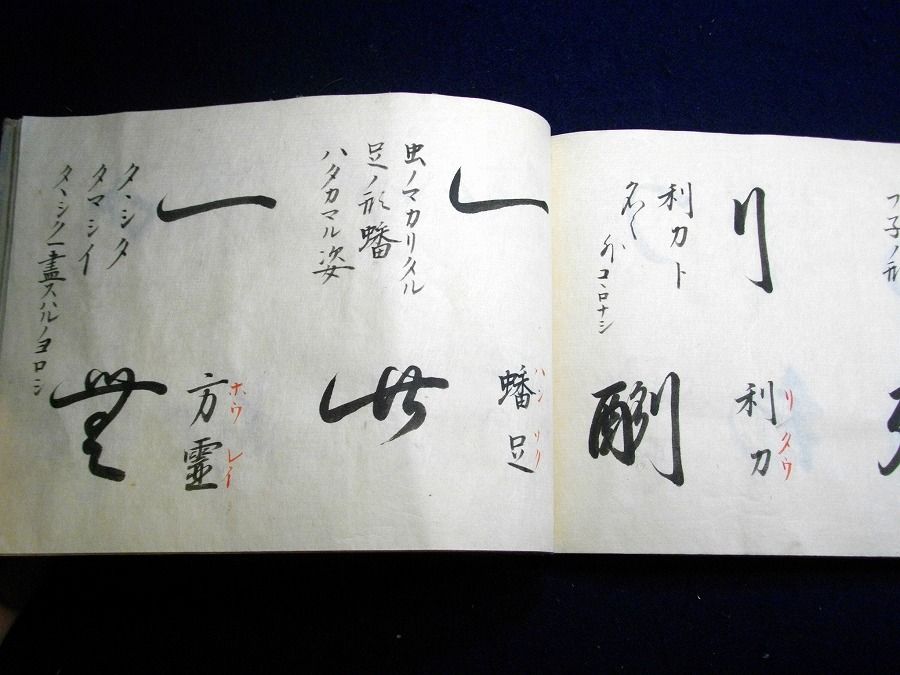 フ子ノ形
利刀ト
名ク
外コヽロナシ
利刀
リタウ
虫ノマカリタル
足ノ形蟠
ハタカマル姿
蟠足
ハン
一
タヽシタ
タマシイ
タヽシク一畫スハルノヨロシ
方霊
ホウレイ
無